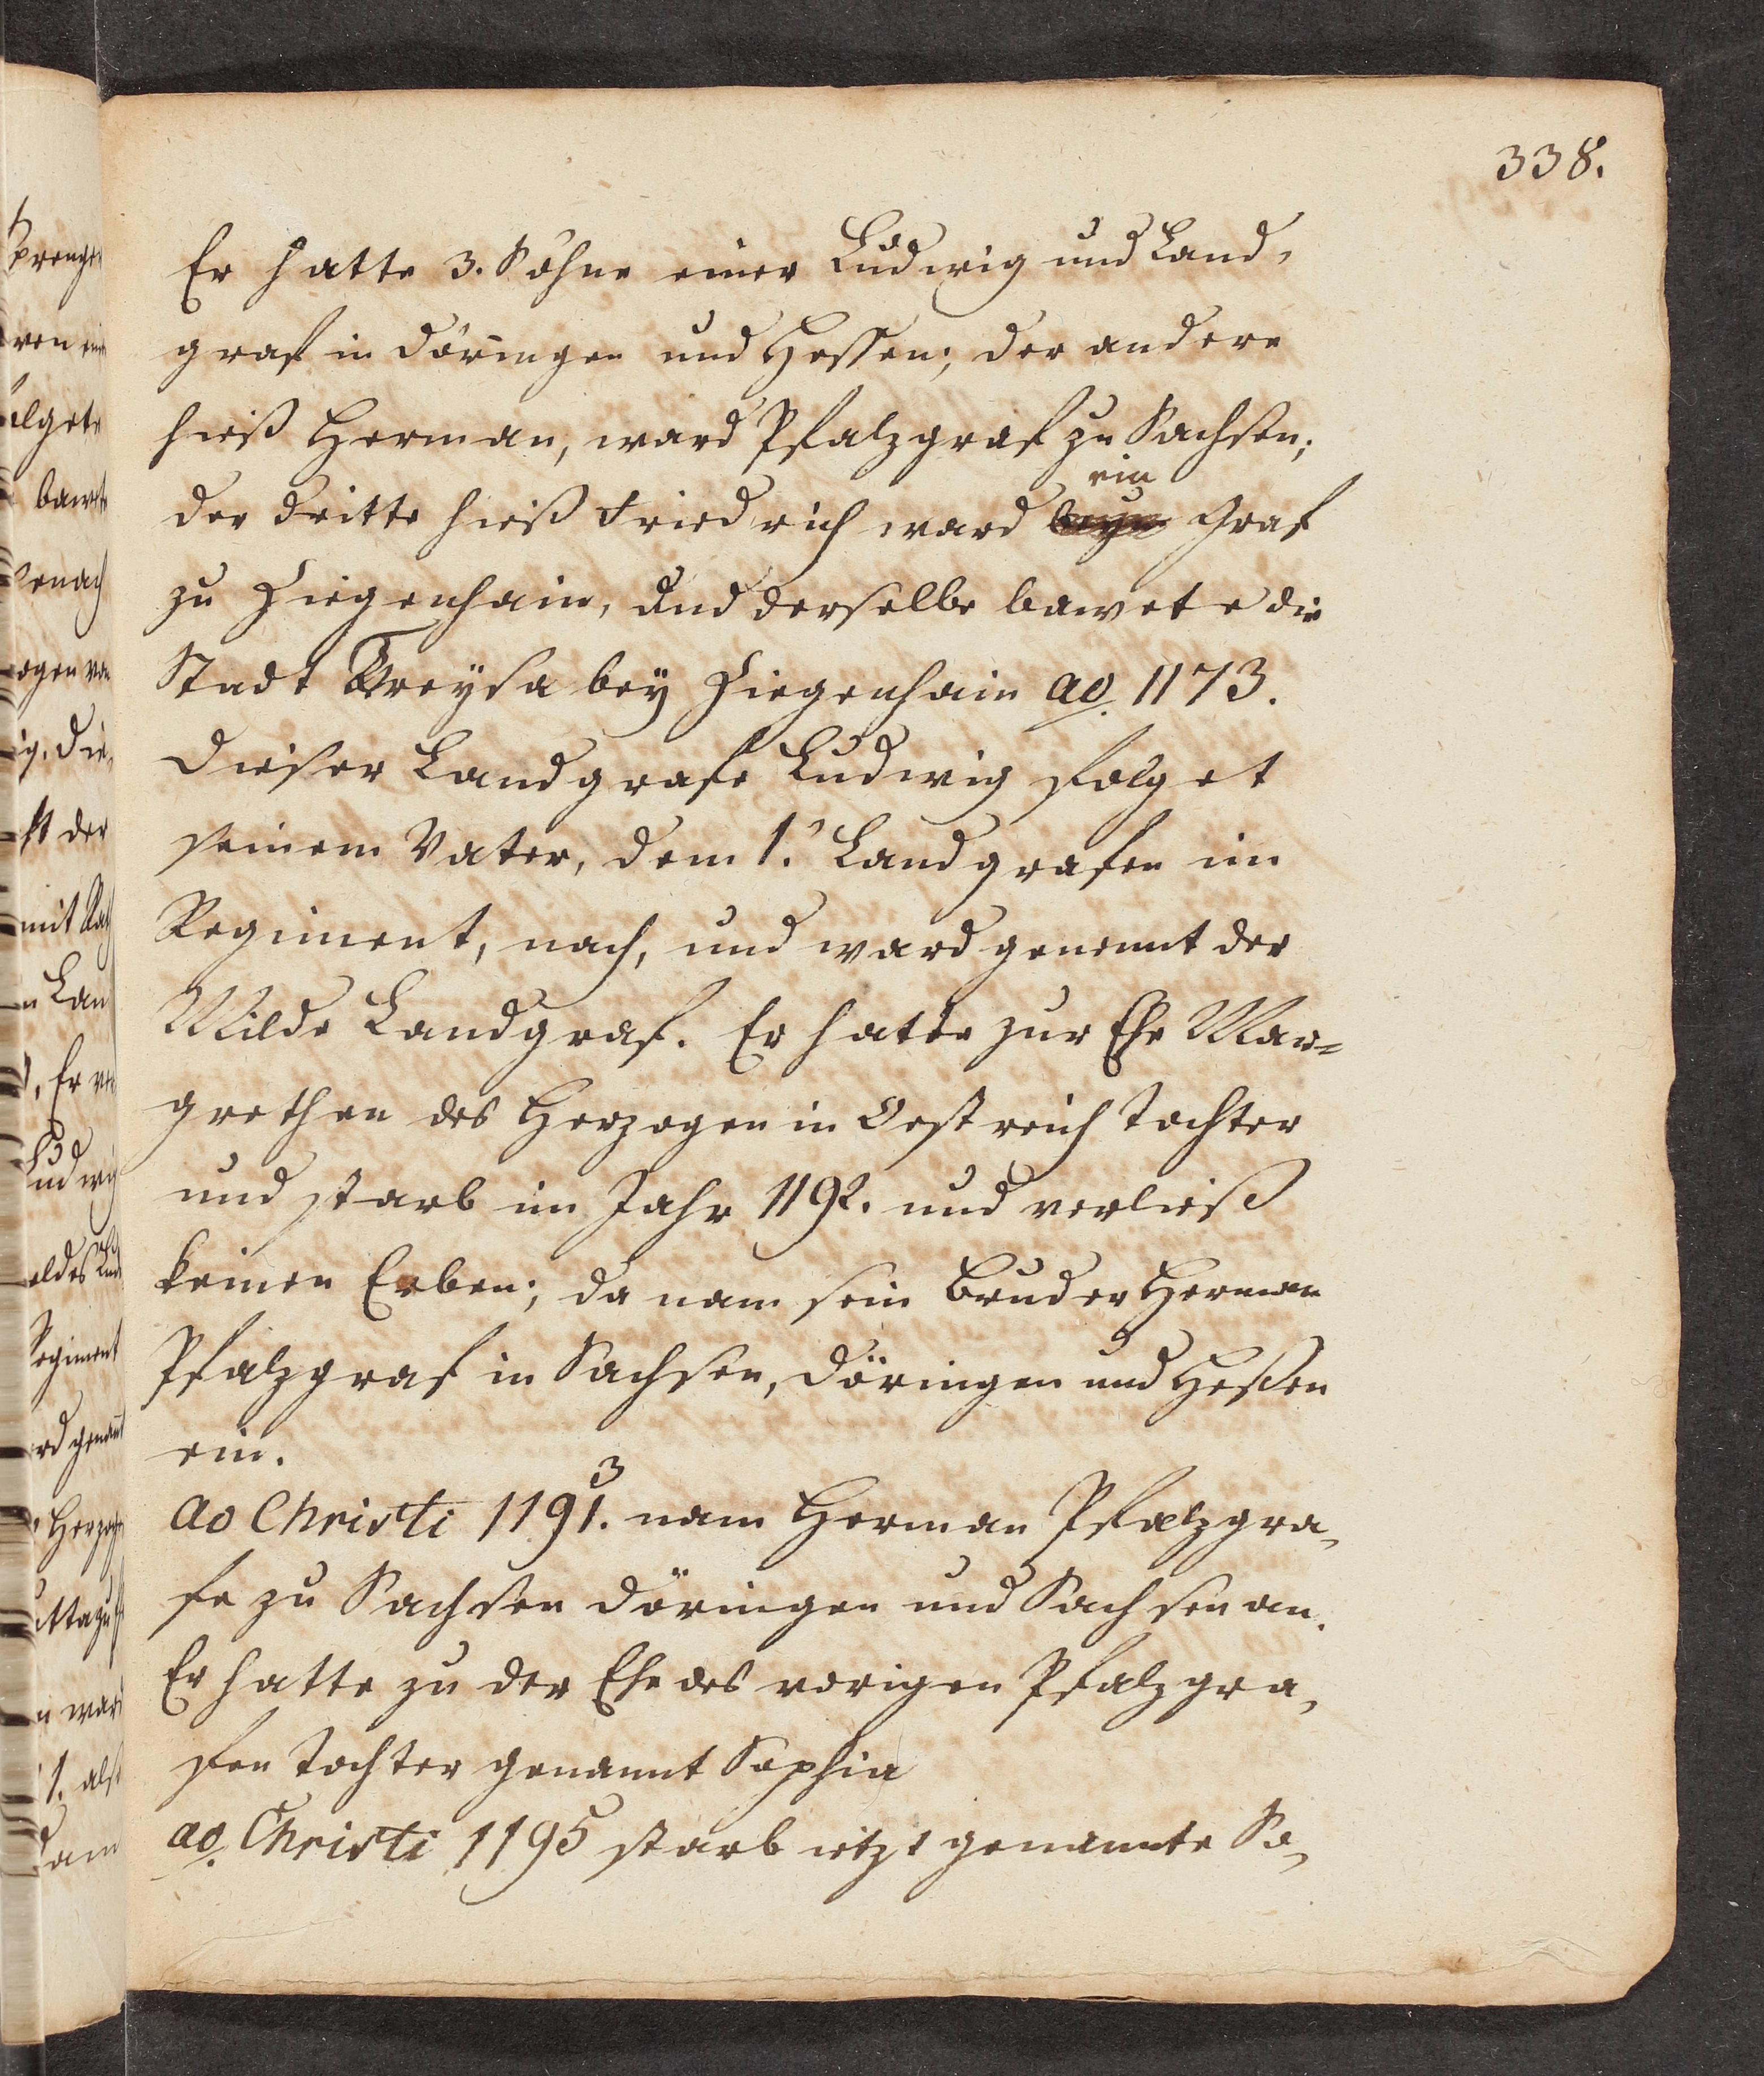 338.
Er hatte 3. Söhne einer Ludwig und Land-
graf in Döringen und Hessen; der andere
hieß Herman, ward Pfalzgraf zu Sachsen;
ein
der dritte hieß Friedrich ward Graf
zu Ziegenhain, und derselbe bawete die
Stadt Treysa bey Ziegenhain ao. 1173.
Dieser Landgrafe Ludwig folget
seinem Vater, dem 1. Landgrafen im
Regiment, nach, und ward genennt der
Milde Landgraf. Er hatte zur Ehe Mar=
grethen des Herzogen in Oestreich Tochter
und starb im Jahr 1192. und verließ
keinen Erben; da nam sein Bruder Herman
Pfalzgraf in Sachsen, Döringen und Hessen
ein.
3
ao Christi 1191. nam Herman Pfalzgra-
fe zu Sachsen Döringen und Sachsen an.
Er hatte zu der Ehe des vorigen Pfalzgra-
fen Tochter genannt Sophia
ao. Christi 1195 starb ietzt genannte So-